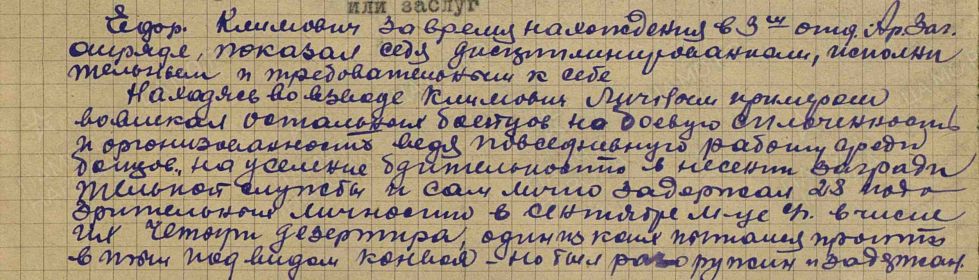 или заслуг
Ефр. Климович за время нахождения в 3м отд. Ар. Заг.
отряде, показал себя дисциплинированным, исполни
тельным и требовательным к себе
Находясь во взводе Климович Личным примером
вовлекал остальных бойцов на боевую сплоченность
и организованность ведя повседневную работу среди
бойцов, на усиление бдительности в несении загради
тельной службы и сам лично задержал 23 подо
зрительной личности в сентябре м-це в числе
их четыре дезертира, один из коих пытался пройти
в тыл под видом конвоя - но был разоружин и задержан.